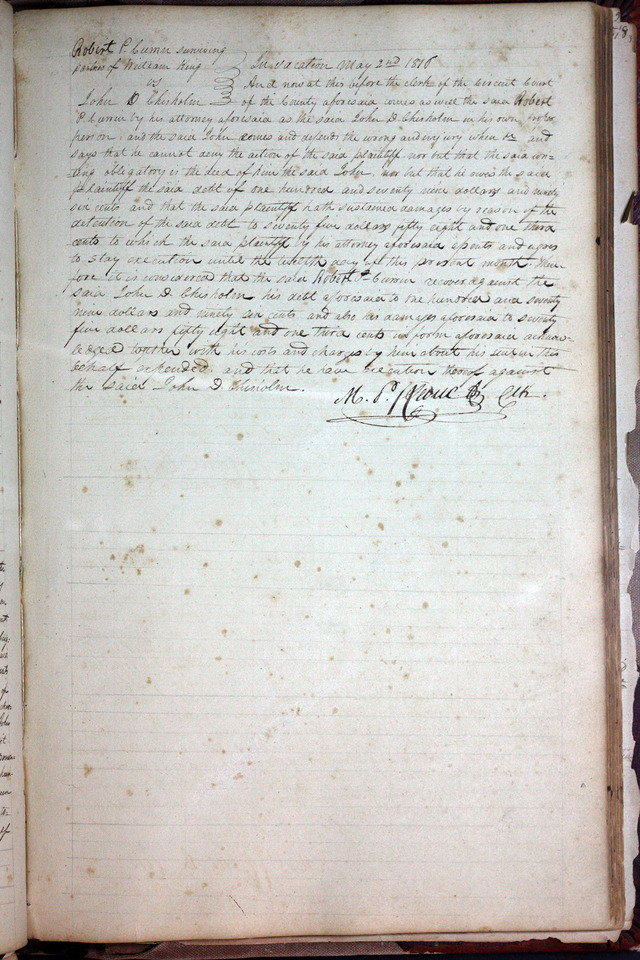 Robert P. Currin surviving
partner of William King
vs
John D Chisholm
In vacation May 2nd 1816
And now at this before the clerk of the Circuit Court
of the County aforesaid comes as well the said Robert
P Currin by his attorney aforesaid as the said John D. Chisholm in his own proper
person; and the said John comes and defends the wrong and injury when &c and
says that he cannot deny the action of the said plaintiff nor but that the said wri=
ting obligatory is the deed of him the said John, nor but that he owes the said
plaintiff the said debt of one hundred and seventy nine dollars and ninety
six cents and that the said plaintiff hath sustained damages by reason of the
detention of the said debt to seventy five dollars fifty eight and one third
cents to which the said plaintiff by his attorney aforesaid assents and agrees
to stay execution until the twelfth day of this present month. There
fore it is considered that the said Robert P Currin recover against the
said John D. Chisholm his debt aforesaid to one hundred and seventy
nine dollars and ninety six cents and also his damages aforesaid to seventy
five dollars fifty eight and one third cents in form aforesaid acknow=
ledged together with his costs and charges by him about his suit in this
behalf expended. and that he have execution thereof against
the said John D. Chisholm.
M. P. Clk.